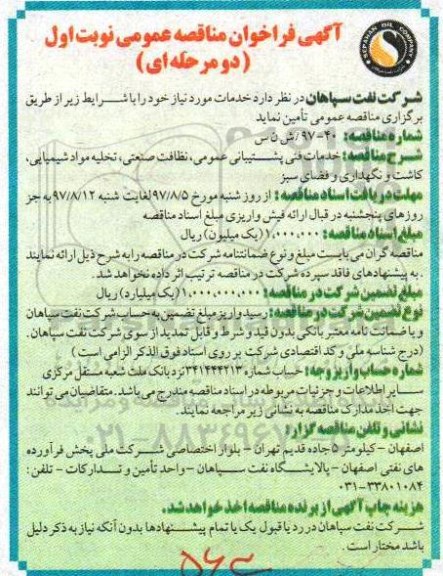 آگهی فراخوان مناقصه عمومی نوبت اول
(دو مرحله ای)
SEPAHAN OIL COMPANY
شرکت نفت سپاهان در نظر دارد خدمات مورد نیاز خود را با شرایط زیر از طریق
برگزاری مناقصه عمومی تأمین نماید
شماره مناقصه: ۴۰-۹۷/ش ن س
شرح مناقصه: خدمات فنی پشتیبانی عمومی، نظافت صنعتی، تخلیه مواد شیمیایی،
کاشت و نگهداری و فضای سبز
مهلت دریافت اسناد مناقصه: از روز شنبه مورخ ۹۷/۸/۵ لغایت شنبه ۹۷/۸/۱۲ به جز
روزهای پنجشنبه در قبال ارائه فیش واریزی مبلغ اسناد مناقصه
مبلغ اسناد مناقصه: ۱,۰۰۰,۰۰۰ (یک میلیون) ریال
مناقصه گران می بایست مبلغ و نوع ضمانتنامه شرکت در مناقصه را به شرح ذیل ارائه نمایند
. به پیشنهادهای فاقد سپرده شرکت در مناقصه ترتیب اثر داده نخواهد شد.
مبلغ تضمین شرکت در مناقصه: ۱,۰۰۰,۰۰۰,۰۰۰ (یک میلیارد) ریال
نوع تضمین شرکت در مناقصه: رسید واریز مبلغ تضمین به حساب شرکت نفت سپاهان
و یا ضمانت نامه معتبر بانکی بدون قید و شرط و قابل تمدید از سوی شرکت نفت سپاهان.
(درج شناسه ملی و کد اقتصادی شرکت بر روی اسناد فوق الذکر الزامی است)
شماره حساب واریز وجه: حساب شماره ۳۴۱۴۴۴۲۱۳ نزد بانک ملت شعبه مستقل مرکزی
سایر اطلاعات و جزئیات مربوطه در اسناد مناقصه مندرج می باشد. متقاضیان می توانند
جهت اخذ مدارک مناقصه به نشانی زیر مراجعه نمایند.
نشانی و تلفن مناقصه گزار:
اصفهان - کیلومتر ۵ جاده قدیم تهران - بلوار اختصاصی شرکت ملی پخش فرآورده
های نفتی اصفهان - پالایشگاه نفت سپاهان - واحد تأمین و تدارکات - تلفن:
۰۳۱-۳۳۸۰۱۰۸۴
هزینه چاپ آگهی از برنده مناقصه اخذ خواهد شد.
شرکت نفت سپاهان در رد یا قبول یک یا تمام پیشنهادها بدون آنکه نیاز به ذکر دلیل
باشد مختار است.